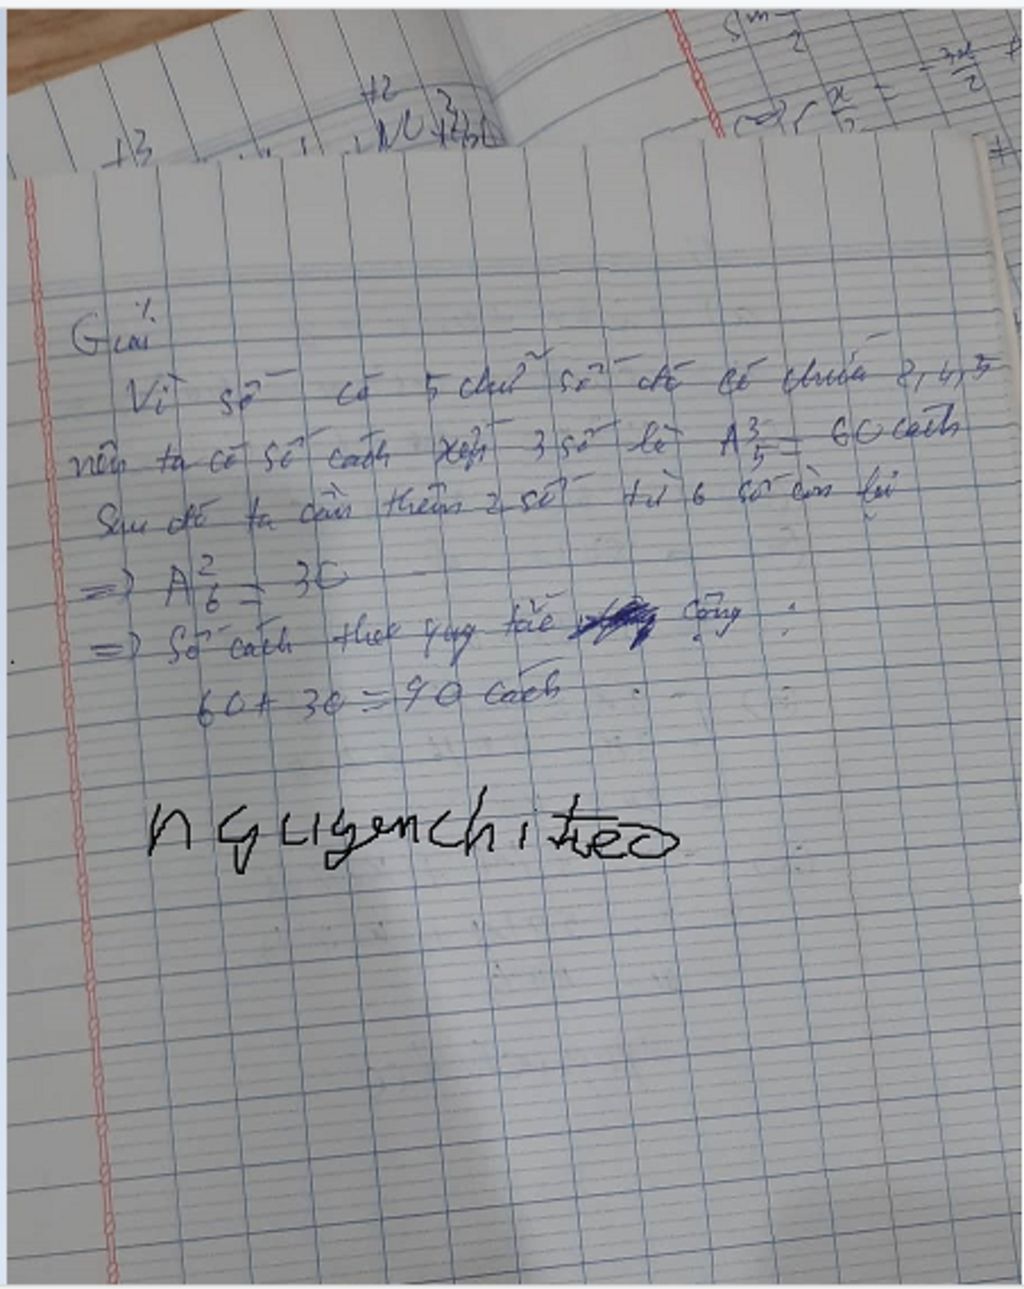 +2
+3
sin
2
x/2 = 3x/2
Giải
Vì số có 5 chữ số đó có chứa 2, 4, 5
nên ta có số cách xếp 3 số là A³₅ = 60 cách
Sau đó ta cần thêm 2 số từ 6 số còn lại
=> A²₆ = 30
=> Số cách theo quy tắc cộng :
60 + 30 = 90 cách
nguyenchiteo